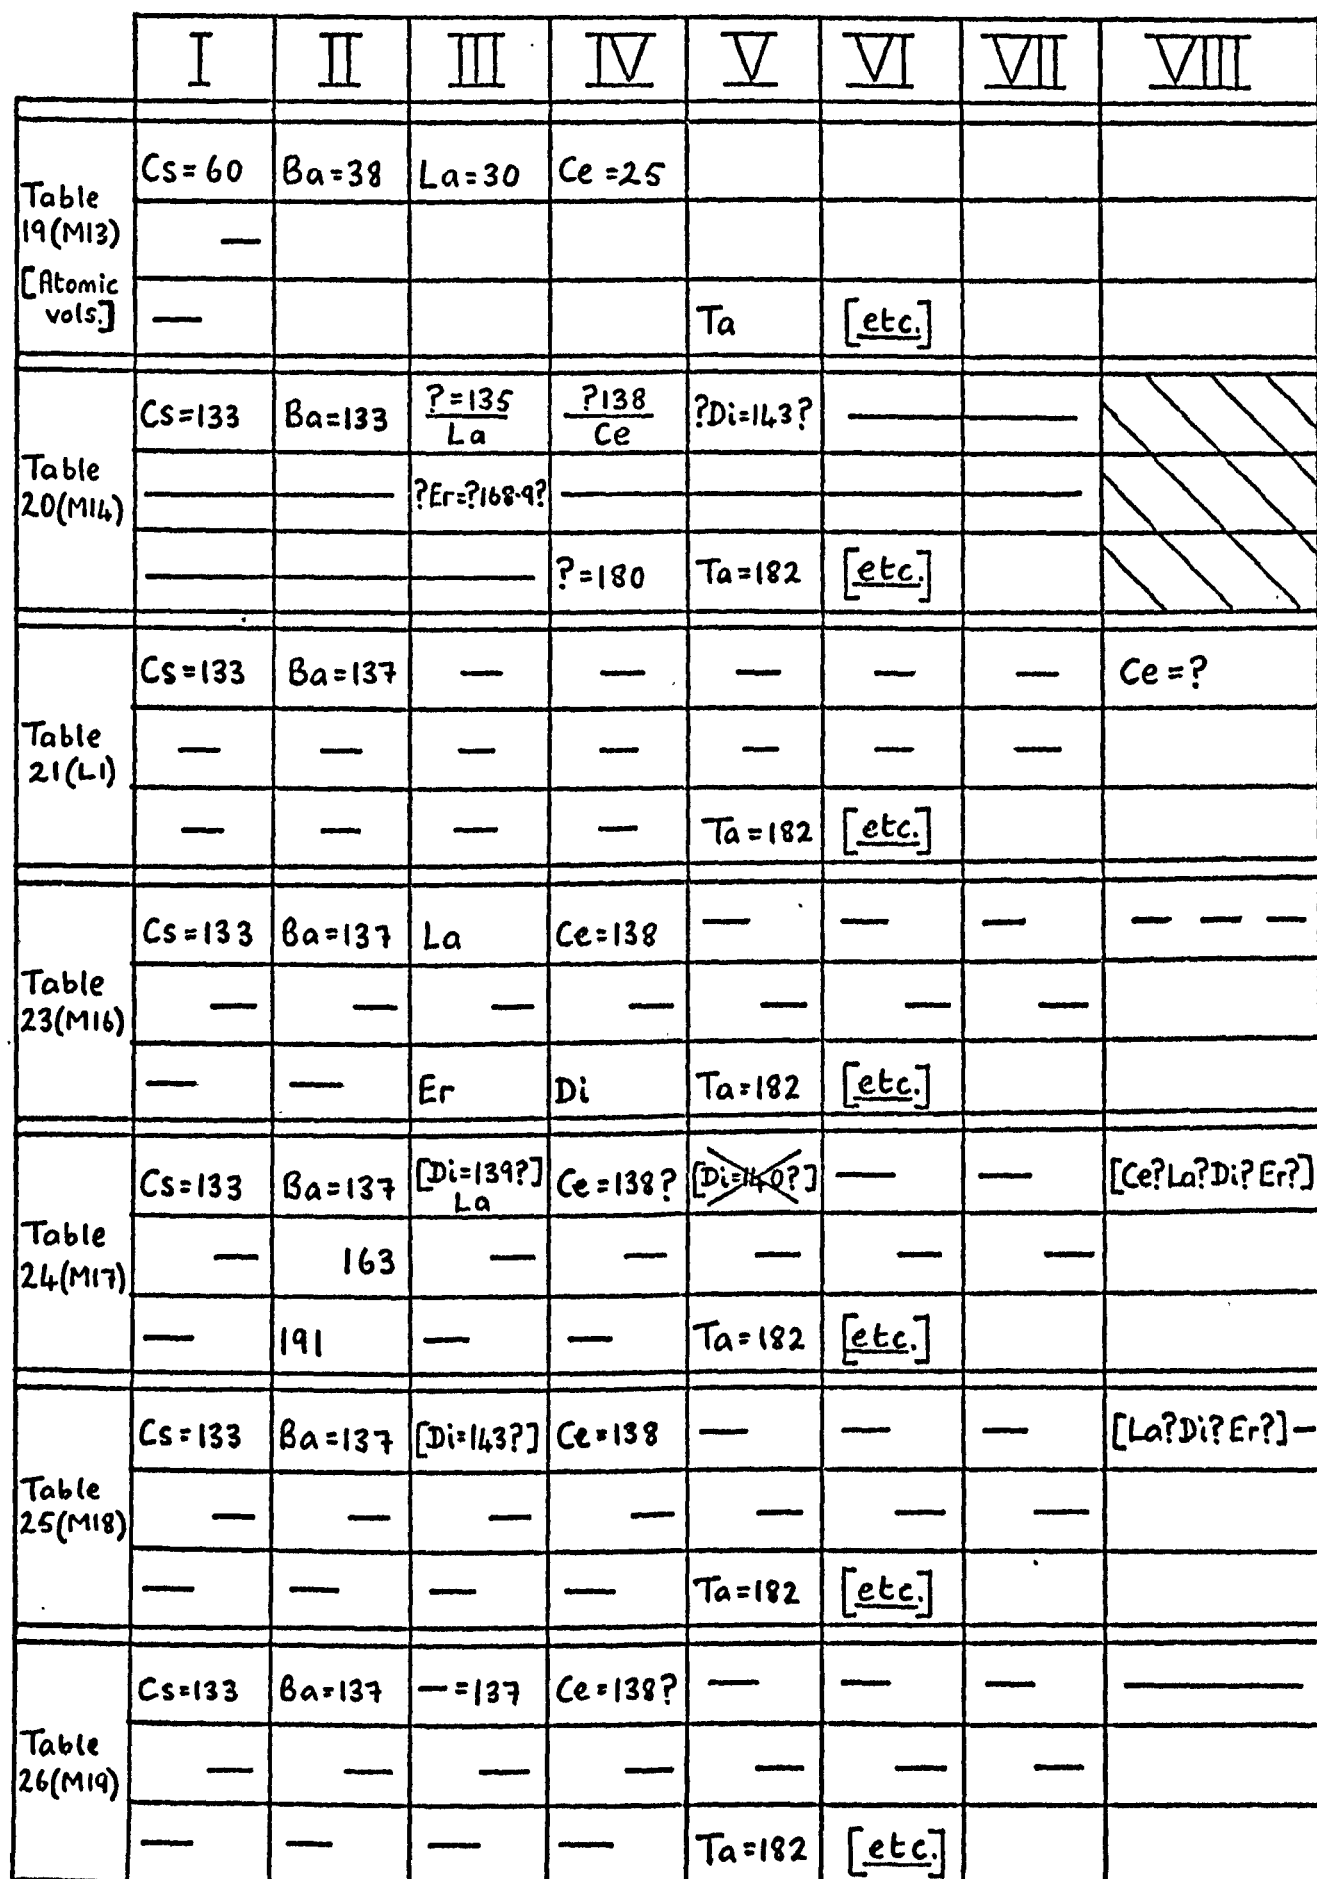 I II III IV V VI VII VIII
Table 19(M13) [Atomic vols.]
Cs=60 Ba=38 La=30 Ce=25
—
— Ta [etc.]
Table 20(M14)
Cs=133 Ba=133 ?=135 La ?138 Ce ?Di=143? —
— ?Er=?168·9? —
— ?=180 Ta=182 [etc.]
Table 21(L1)
Cs=133 Ba=137 — — — — — Ce=?
— — — — — — —
— — — — Ta=182 [etc.]
Table 23(M16)
Cs=133 Ba=137 La Ce=138 — — — — — —
— — — — — — —
— — Er Di Ta=182 [etc.]
Table 24(M17)
Cs=133 Ba=137 [Di=139?] La Ce=138? [Di=140?] — — [Ce?La?Di?Er?]
— 163 — — — — —
— 191 — — Ta=182 [etc.]
Table 25(M18)
Cs=133 Ba=137 [Di=143?] Ce=138 — — — [La?Di?Er?]—
— — — — — — —
— — — — Ta=182 [etc.]
Table 26(M19)
Cs=133 Ba=137 —=137 Ce=138? — — — —
— — — — — — —
— — — — Ta=182 [etc.]